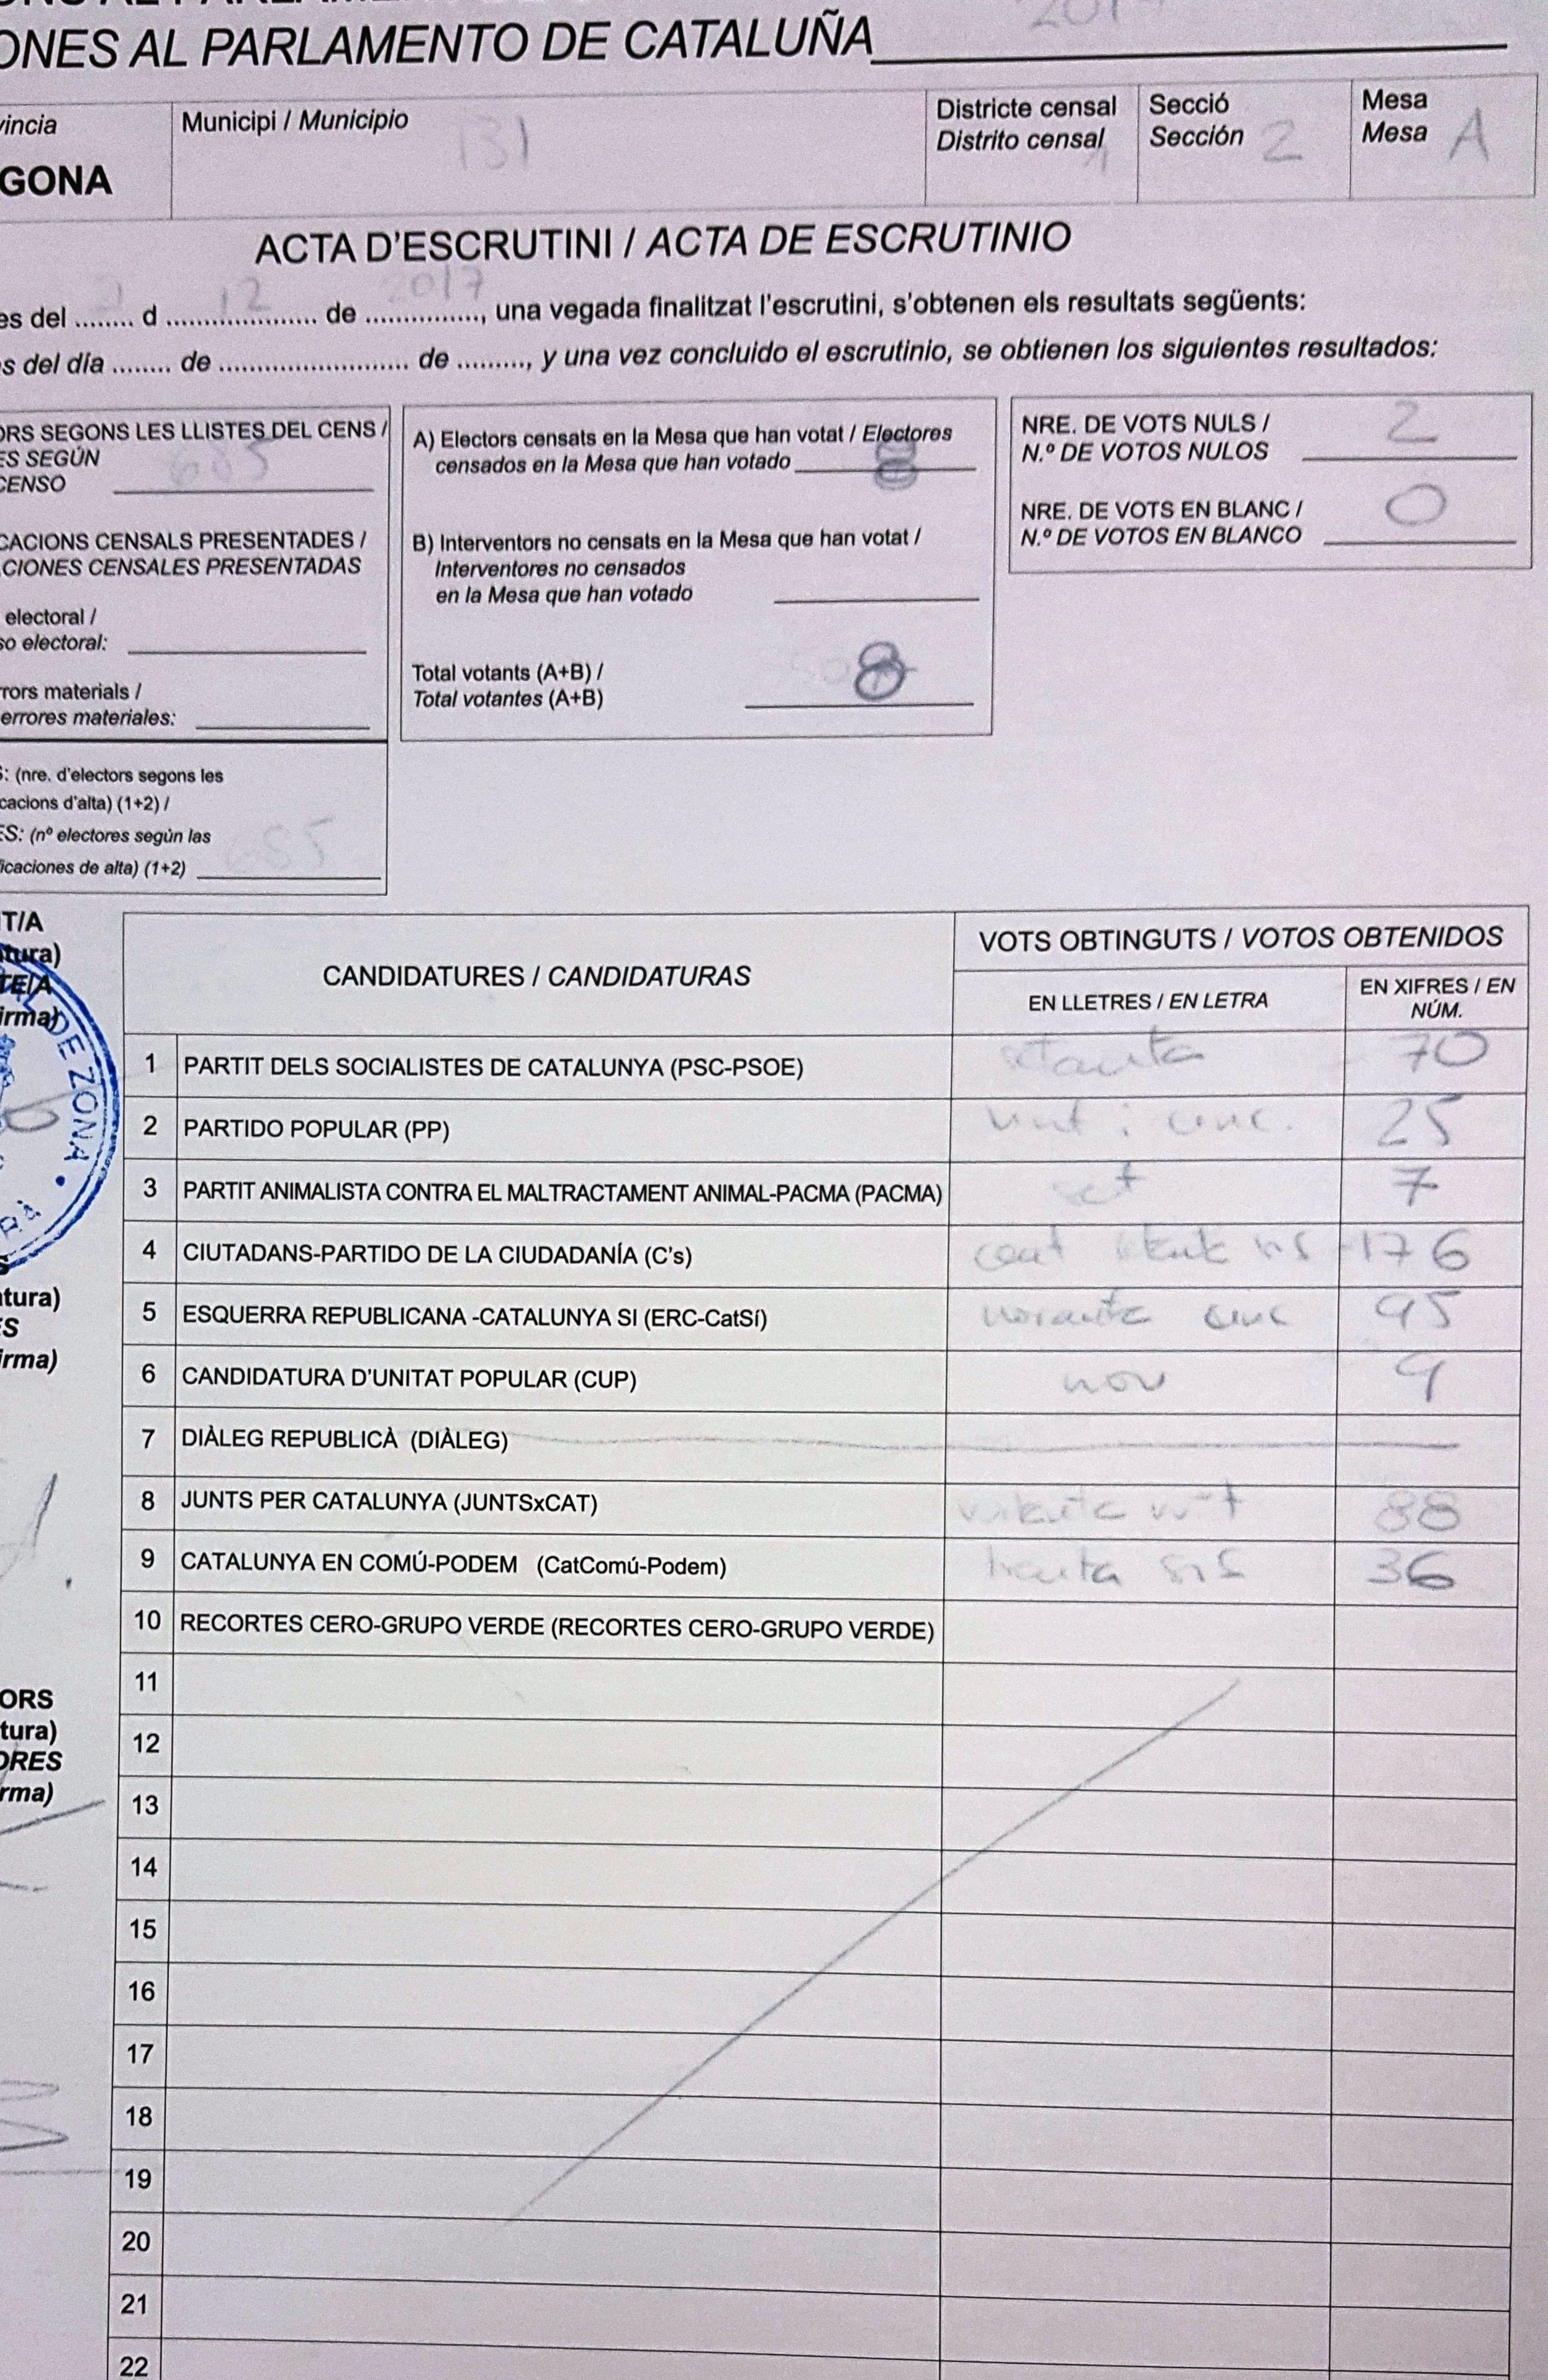 ONES AL PARLAMENTO DE CATALUÑA
vincia
GONA
Municipi / Municipio
131
Districte censal
Distrito censal 1
Secció
Sección 2
Mesa
Mesa A
ACTA D'ESCRUTINI / ACTA DE ESCRUTINIO
es del ........ d 12 de 2017, una vegada finalitzat l'escrutini, s'obtenen els resultats següents:
s del día ........ de .......................... de ........., y una vez concluido el escrutinio, se obtienen los siguientes resultados:
ORS SEGONS LES LLISTES DEL CENS /
ES SEGÚN
CENSO
CACIONS CENSALS PRESENTADES /
CIONES CENSALES PRESENTADAS
electoral /
so electoral:
rrors materials /
errores materiales:
S: (nre. d'electors segons les
cacions d'alta) (1+2) /
ES: (nº electores según las
ficaciones de alta) (1+2)
A) Electors censats en la Mesa que han votat / Electores
censados en la Mesa que han votado
B) Interventors no censats en la Mesa que han votat /
Interventores no censados
en la Mesa que han votado
Total votants (A+B) /
Total votantes (A+B)
8
NRE. DE VOTS NULS /
N.º DE VOTOS NULOS 2
NRE. DE VOTS EN BLANC /
N.º DE VOTOS EN BLANCO 0
T/A
tura)
TE/A
irma)
DE ZONA
tura)
ES
irma)
ORS
tura)
ORES
rma)
CANDIDATURES / CANDIDATURAS
VOTS OBTINGUTS / VOTOS OBTENIDOS
EN LLETRES / EN LETRA
EN XIFRES / EN
NÚM.
1 PARTIT DELS SOCIALISTES DE CATALUNYA (PSC-PSOE) setanta 70
2 PARTIDO POPULAR (PP) vint i cinc. 25
3 PARTIT ANIMALISTA CONTRA EL MALTRACTAMENT ANIMAL-PACMA (PACMA) set 7
4 CIUTADANS-PARTIDO DE LA CIUDADANÍA (C's) cent setanta sis 176
5 ESQUERRA REPUBLICANA -CATALUNYA SI (ERC-CatSí) noranta cinc 95
6 CANDIDATURA D'UNITAT POPULAR (CUP) nou 9
7 DIÀLEG REPUBLICÀ (DIÀLEG)
8 JUNTS PER CATALUNYA (JUNTSxCAT) vuitanta vuit 88
9 CATALUNYA EN COMÚ-PODEM (CatComú-Podem) trenta sis 36
10 RECORTES CERO-GRUPO VERDE (RECORTES CERO-GRUPO VERDE)
11
12
13
14
15
16
17
18
19
20
21
22